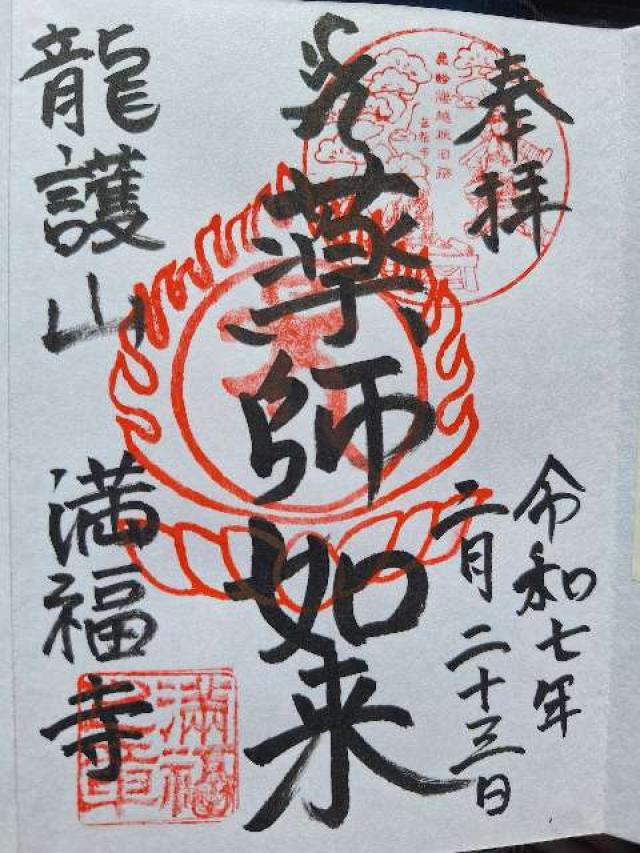 奉拝
令和七年
二月二十三日
薬師如来
龍護山
満福寺
満福